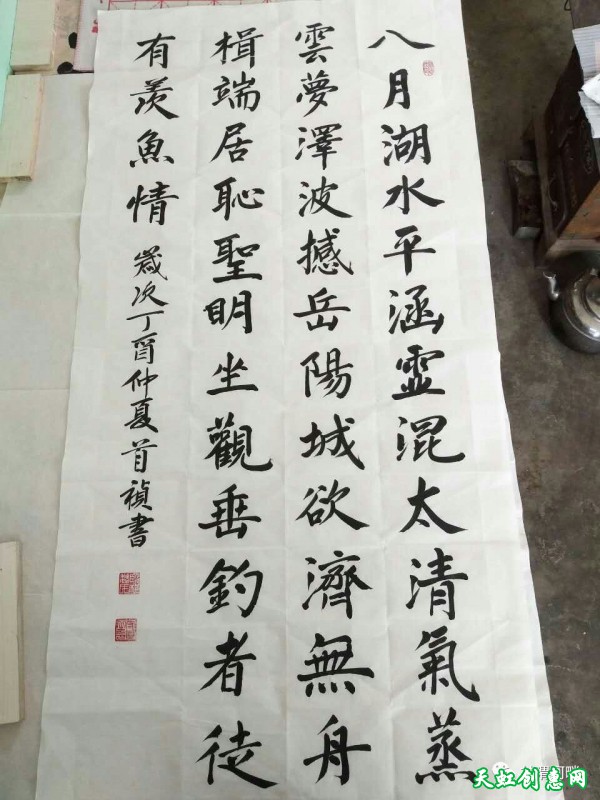 八月湖水平涵霊混太清氣蒸
雲夢澤波撼岳陽城欲濟無舟
楫端居恥聖明坐觀垂釣者徒
有羨魚情
歲次丁酉仲夏首禎書
天虹创惠网